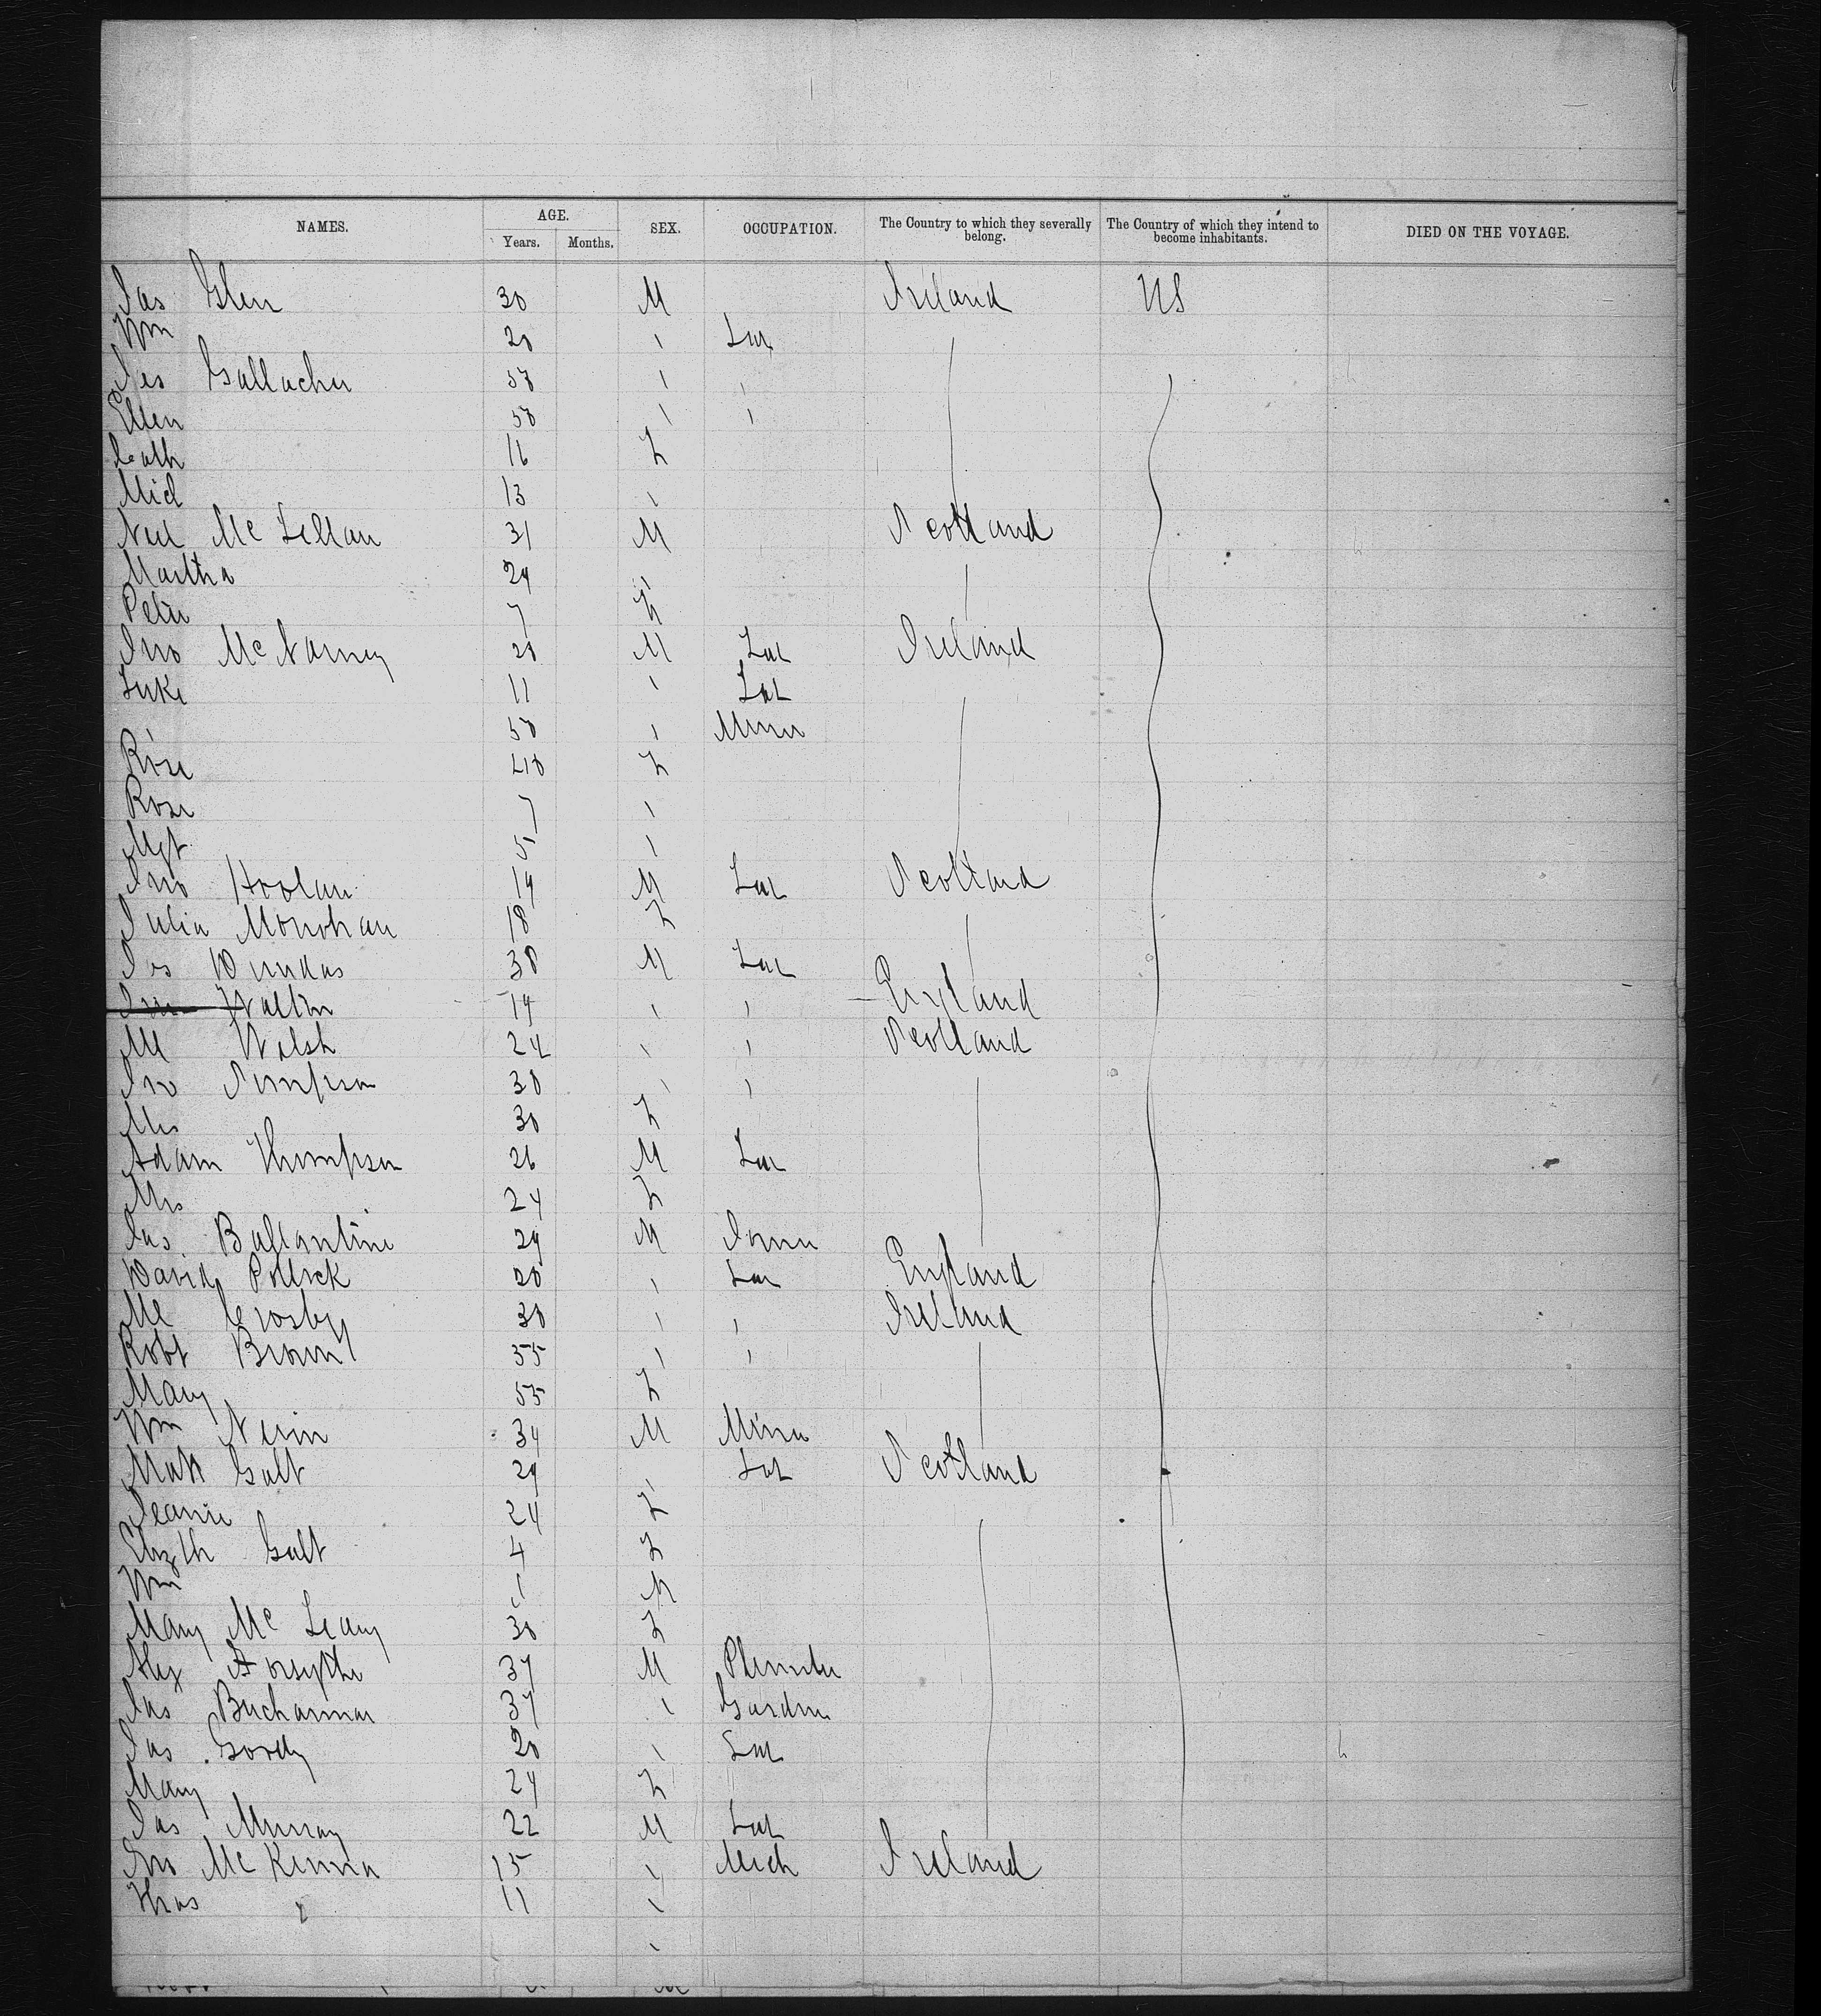 NAMES. AGE. SEX. OCCUPATION. The Country to which they severally belong. The Country of which they intend to become inhabitants. DIED ON THE VOYAGE.
Years. Months.
Jas Glen 30 M Ireland US
Wm 20 Lab
Jas Gallacher 50
Ellen 50
Cath 16 F
Mid 13
Neil Mc Lellan 31 M Scotland
Martha 24
Peter 7
Jno Mc Narney 20 M Lab Ireland
Luke 11 Lab
50 Miner
Rose 40 F
Rose 7
Mgt 5
Jno Hoolan 14 M Lab Scotland
Julia Monohan 18 F
Jas Dundas 30 M Lab
Walton 14 England
Ml Walsh 24 Scotland
Jno Simpson 30
Mrs 30 F
Adam Thompson 26 M Lab
Mrs 24 F
Jas Ballantine 24 M Joiner
David Pollock 20 Lab England
Ml Crosby 30 Ireland
Robt Brown 55
Mary 55 F
Wm Nevin 34 M Miner
Matt Galt 24 Lab Scotland
Jeanie 24 F
Elizth Galt 4 F
Wm 1 M
Mary Mc Leary 30 F
Alex Forsythe 34 M Plumber
Jas Buchannan 34 Gardnr
Jas Gordy 20 Lab
Mary 24 F
Jas Murray 22 M Lab
Jno Mc Kenna 15 Mech Ireland
Thos 11